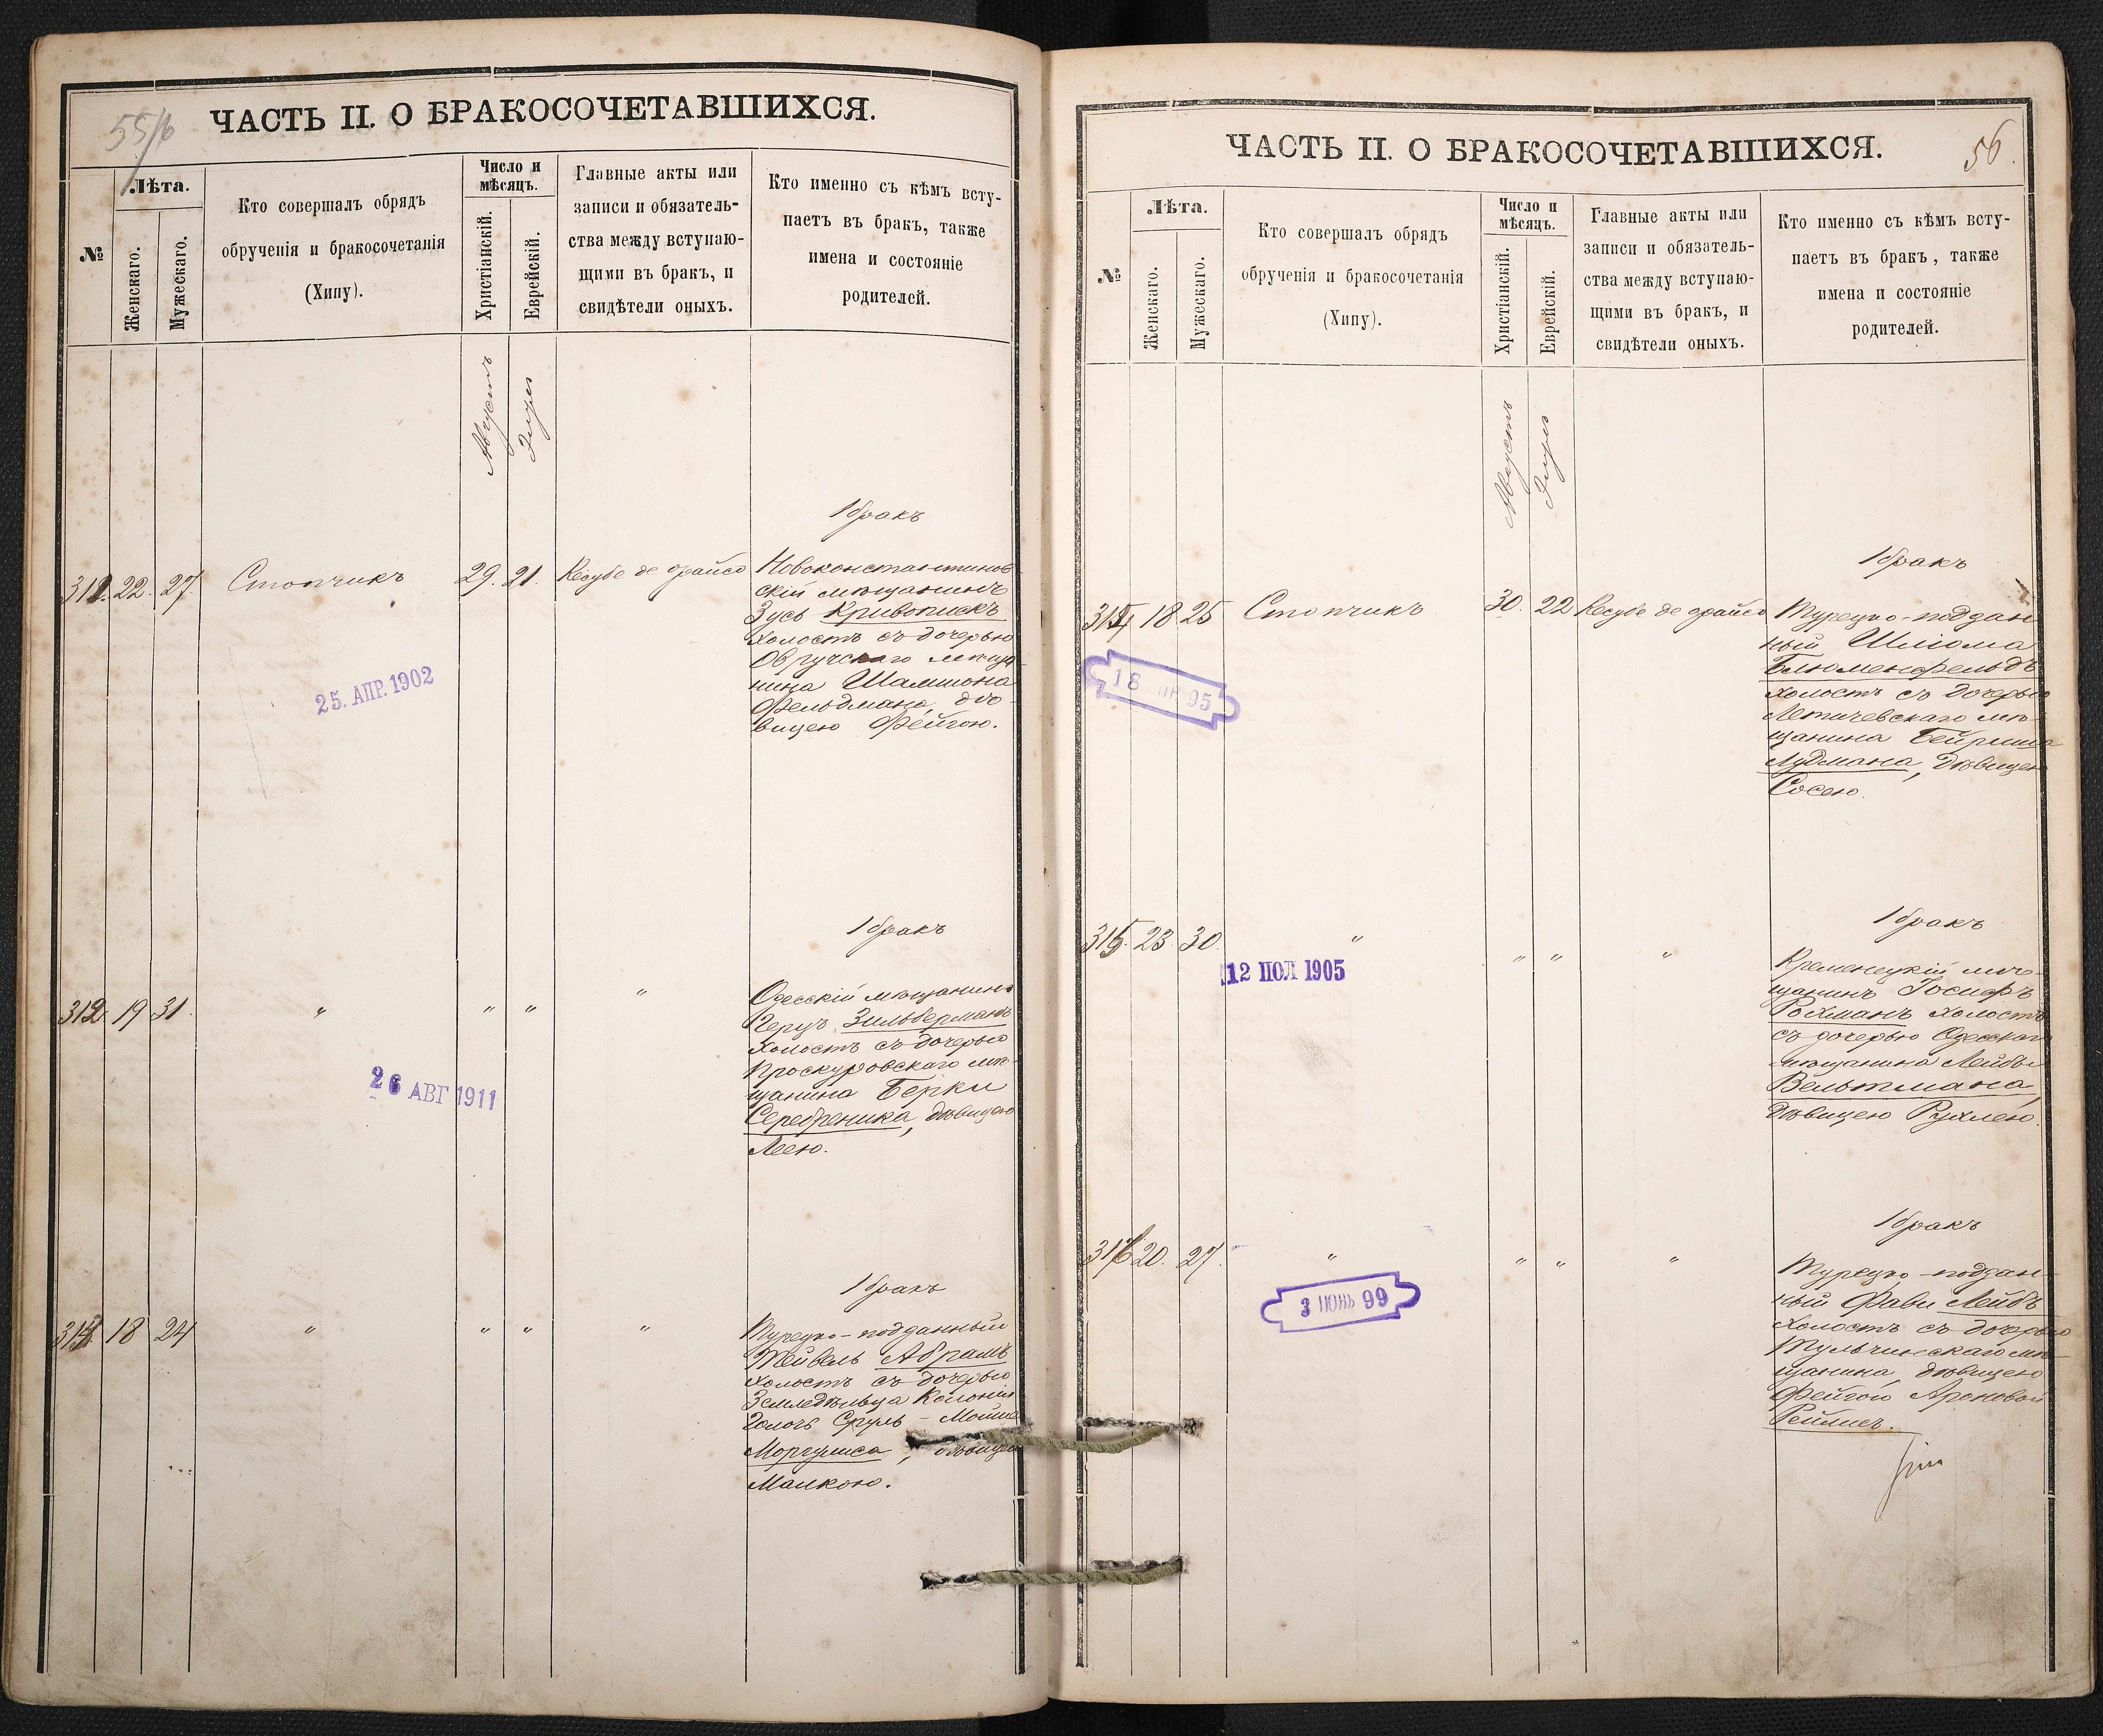 55/б
ЧАСТЬ II. О БРАКОСОЧЕТАВШИХСЯ.
№
Лѣта.
Женскаго.
Мужескаго.
Кто совершалъ обрядъ
обрученія и бракосочетанія
(Хипу).
Число и
мѣсяцъ.
Христіанскій.
Еврейскій.
Главные акты или
записи и обязатель-
ства между вступаю-
щими въ бракъ, и
свидѣтели оныхъ.
Кто именно съ кѣмъ всту-
паетъ въ бракъ, также
имена и состояніе
родителей.
Августъ
Элулъ
1 бракъ
311. 22. 27. Стопчикъ 29. 21. Кесубе де орайсо
Новоконстантинов
скій мѣщанинъ
Зусь Кривопискъ
холостъ съ дочерью
Овручскаго мѣща-
нина Шамшона
Фельдмана, дѣ-
вицею Фейгою.
25. АПР. 1902
1 бракъ
312 19 31. " " " "
Одесскій мѣщанинъ
Герцъ Зильберманъ
холостъ съ дочерью
Проскуровскаго мѣ-
щанина Берки
Серебреника, дѣвицею
Леею.
26 АВГ 1911
1 бракъ
313 18 24 " " " "
Турецко-подданный
Тейвель Абрамъ
холостъ съ дочерью
Земледѣльца Колоніи
Сруль - Мойше
Моргулиса, дѣвицею
Малкою.
56.
ЧАСТЬ II. О БРАКОСОЧЕТАВШИХСЯ.
№
Лѣта.
Женскаго.
Мужескаго.
Кто совершалъ обрядъ
обрученія и бракосочетанія
(Хипу).
Число и
мѣсяцъ.
Христіанскій.
Еврейскій.
Главные акты или
записи и обязатель-
ства между вступаю-
щими въ бракъ, и
свидѣтели оныхъ.
Кто именно съ кѣмъ всту-
паетъ въ бракъ, также
имена и состояніе
родителей.
Августъ
Элулъ
1 бракъ
314 18 25 Стопчикъ 30. 22 Кесубе де орайсо
Турецко-поддан
ный Шлiома
Блюменфельдъ
холостъ съ дочерью
Летичевскаго мѣ-
щанина Бейриша
Лудмана, дѣвицею
Сосею.
18 95
1 бракъ
315. 23 30. " " " "
Кременецкій мѣ-
щанинъ Іосифъ
Рохманъ холостъ
съ дочерью Одесскаго
мѣщанина Лейбы
Вельтмана,
дѣвицею Рухлею.
12 ІЮЛ 1905
1 бракъ
316 20. 27. " " " "
Турецко-поддан-
ный Фави Лейбъ
холостъ съ дочерью
Тульчинскаго мѣ-
щанина, дѣвицею
Фейгою Ароновой
Рейлисъ.
3 ІЮНЬ 99